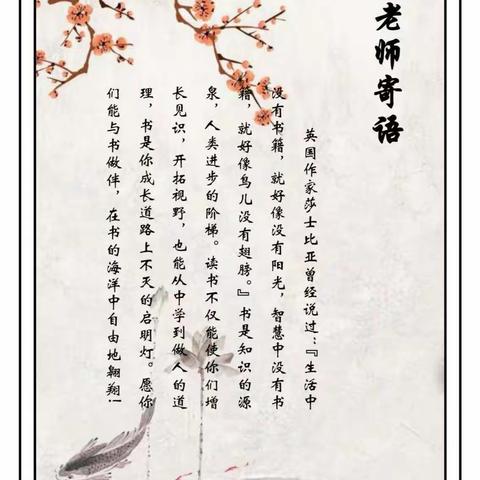 老师寄语
英国作家莎士比亚曾经说过：『生活中
没有书籍，就好像没有阳光，智慧中没有书
籍，就好像鸟儿没有翅膀。』书是知识的源
泉，人类进步的阶梯。读书不仅能使你们增
长见识，开拓视野，也能从中学到做人的道
理，书是你成长道路上不灭的启明灯。愿你
们能与书做伴，在书的海洋中自由地翱翔！